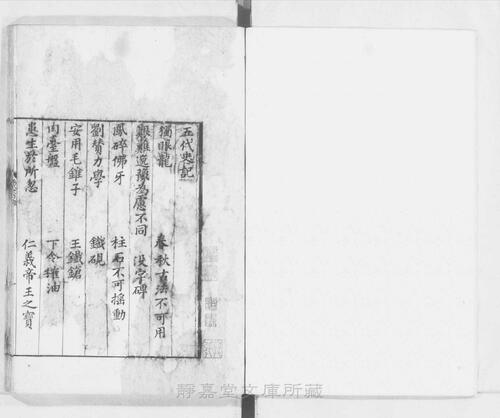 五代史記
獨眼龍　春秋古法不可用
艱難逸豫為慮不同　沒字碑
鳳碎佛牙　柱石不可搖動
劉贊力學　鐵硯
安用毛錐子　王鐵鎗
肉臺盤　下令榷油
患生於所忽　仁義帝王之寶
靜嘉堂文庫所藏